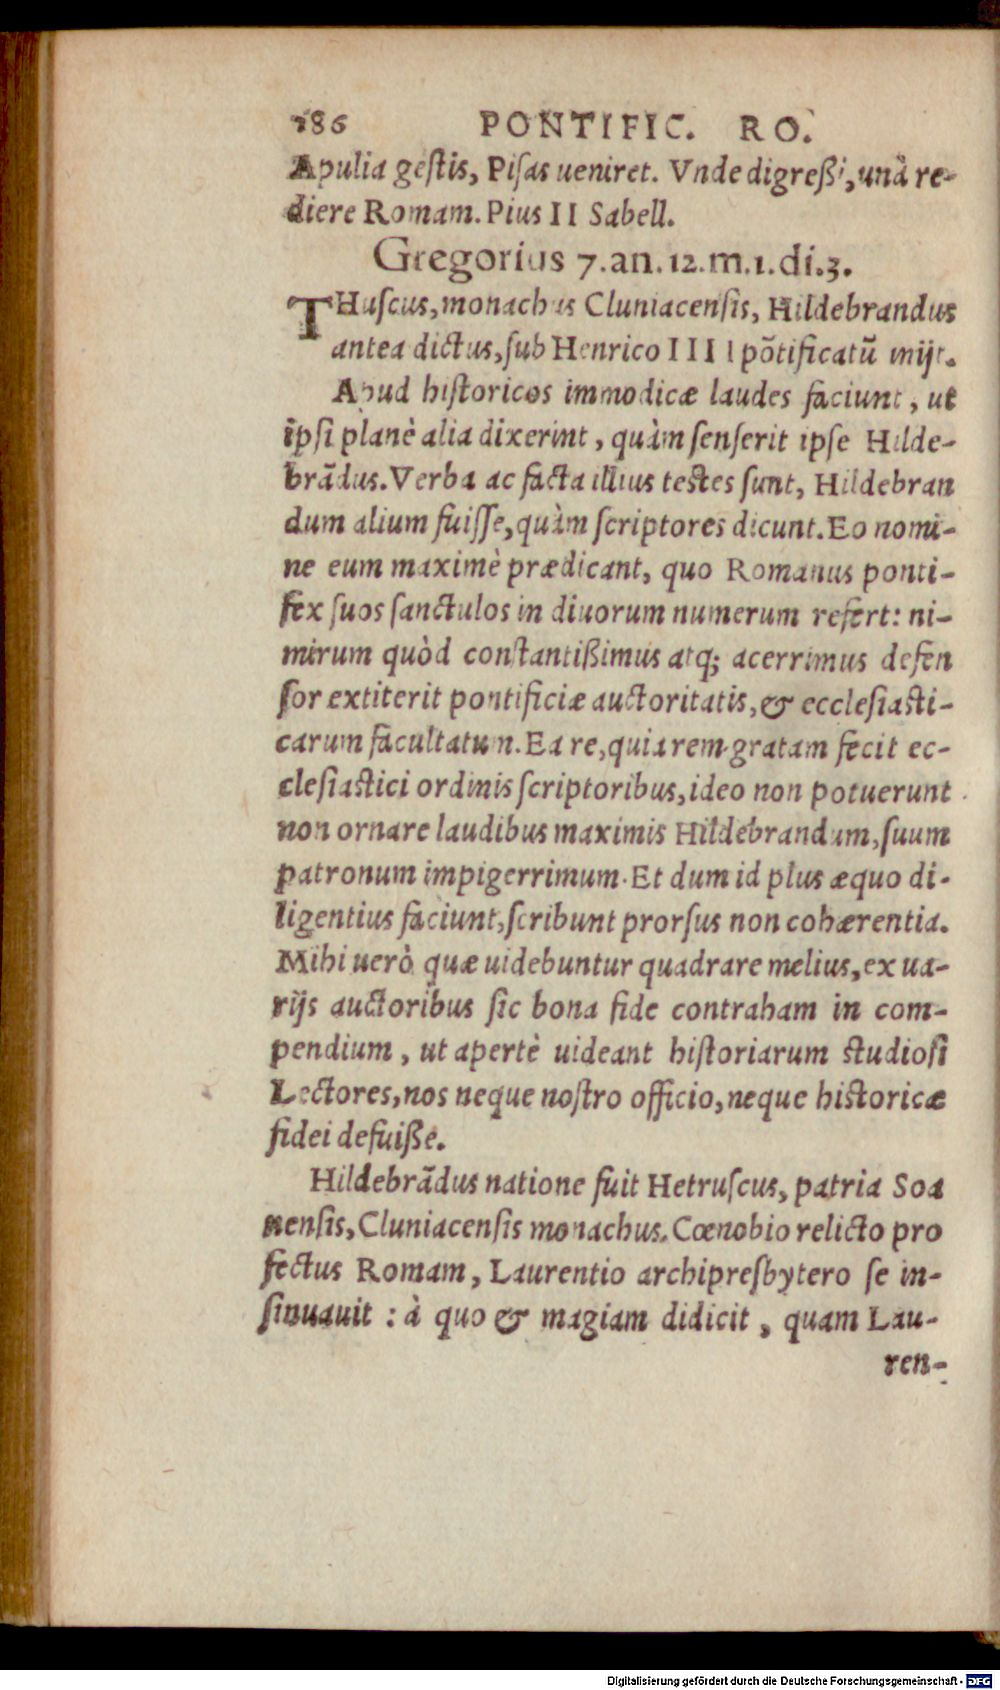 186 PONTIFIC. RO.
Apulia gestis, Pisas ueniret. Vnde digreßi, unà re-
diere Romam. Pius II Sabell.
Gregorius 7. an. 12. m. 1. di. 3.
THuscus, monachus Cluniacensis, Hildebrandus
antea dictus, sub Henrico IIII põtificatũ inijt.
Apud historicos immodicæ laudes faciunt, ut
ipsi planè alia dixerint, quàm senserit ipse Hilde-
brãdus. Verba ac facta illius testes sunt, Hildebran
dum alium fuisse, quàm scriptores dicunt. Eo nomi-
ne eum maximè prædicant, quo Romanus ponti-
fex suos sanctulos in diuorum numerum refert: ni-
mirum quòd constantißimus atq; acerrimus defen
sor extiterit pontificiæ auctoritatis, & ecclesiasti-
carum facultatum. Ea re, quia rem gratam fecit ec-
clesiastici ordinis scriptoribus, ideo non potuerunt
non ornare laudibus maximis Hildebrandum, suum
patronum impigerrimum. Et dum id plus æquo di-
ligentius faciunt, scribunt prorsus non cohærentia.
Mihi uerò quæ uidebuntur quadrare melius, ex ua-
rijs auctoribus sic bona fide contraham in com-
pendium, ut apertè uideant historiarum studiosi
Lectores, nos neque nostro officio, neque historicæ
fidei defuiße.
Hildebrãdus natione fuit Hetruscus, patria Soa
nensis, Cluniacensis monachus. Cœnobio relicto pro
fectus Romam, Laurentio archipresbytero se in-
sinuauit: à quo & magiam didicit, quam Lau-
ren-
Digitalisierung gefördert durch die Deutsche Forschungsgemeinschaft - DFG